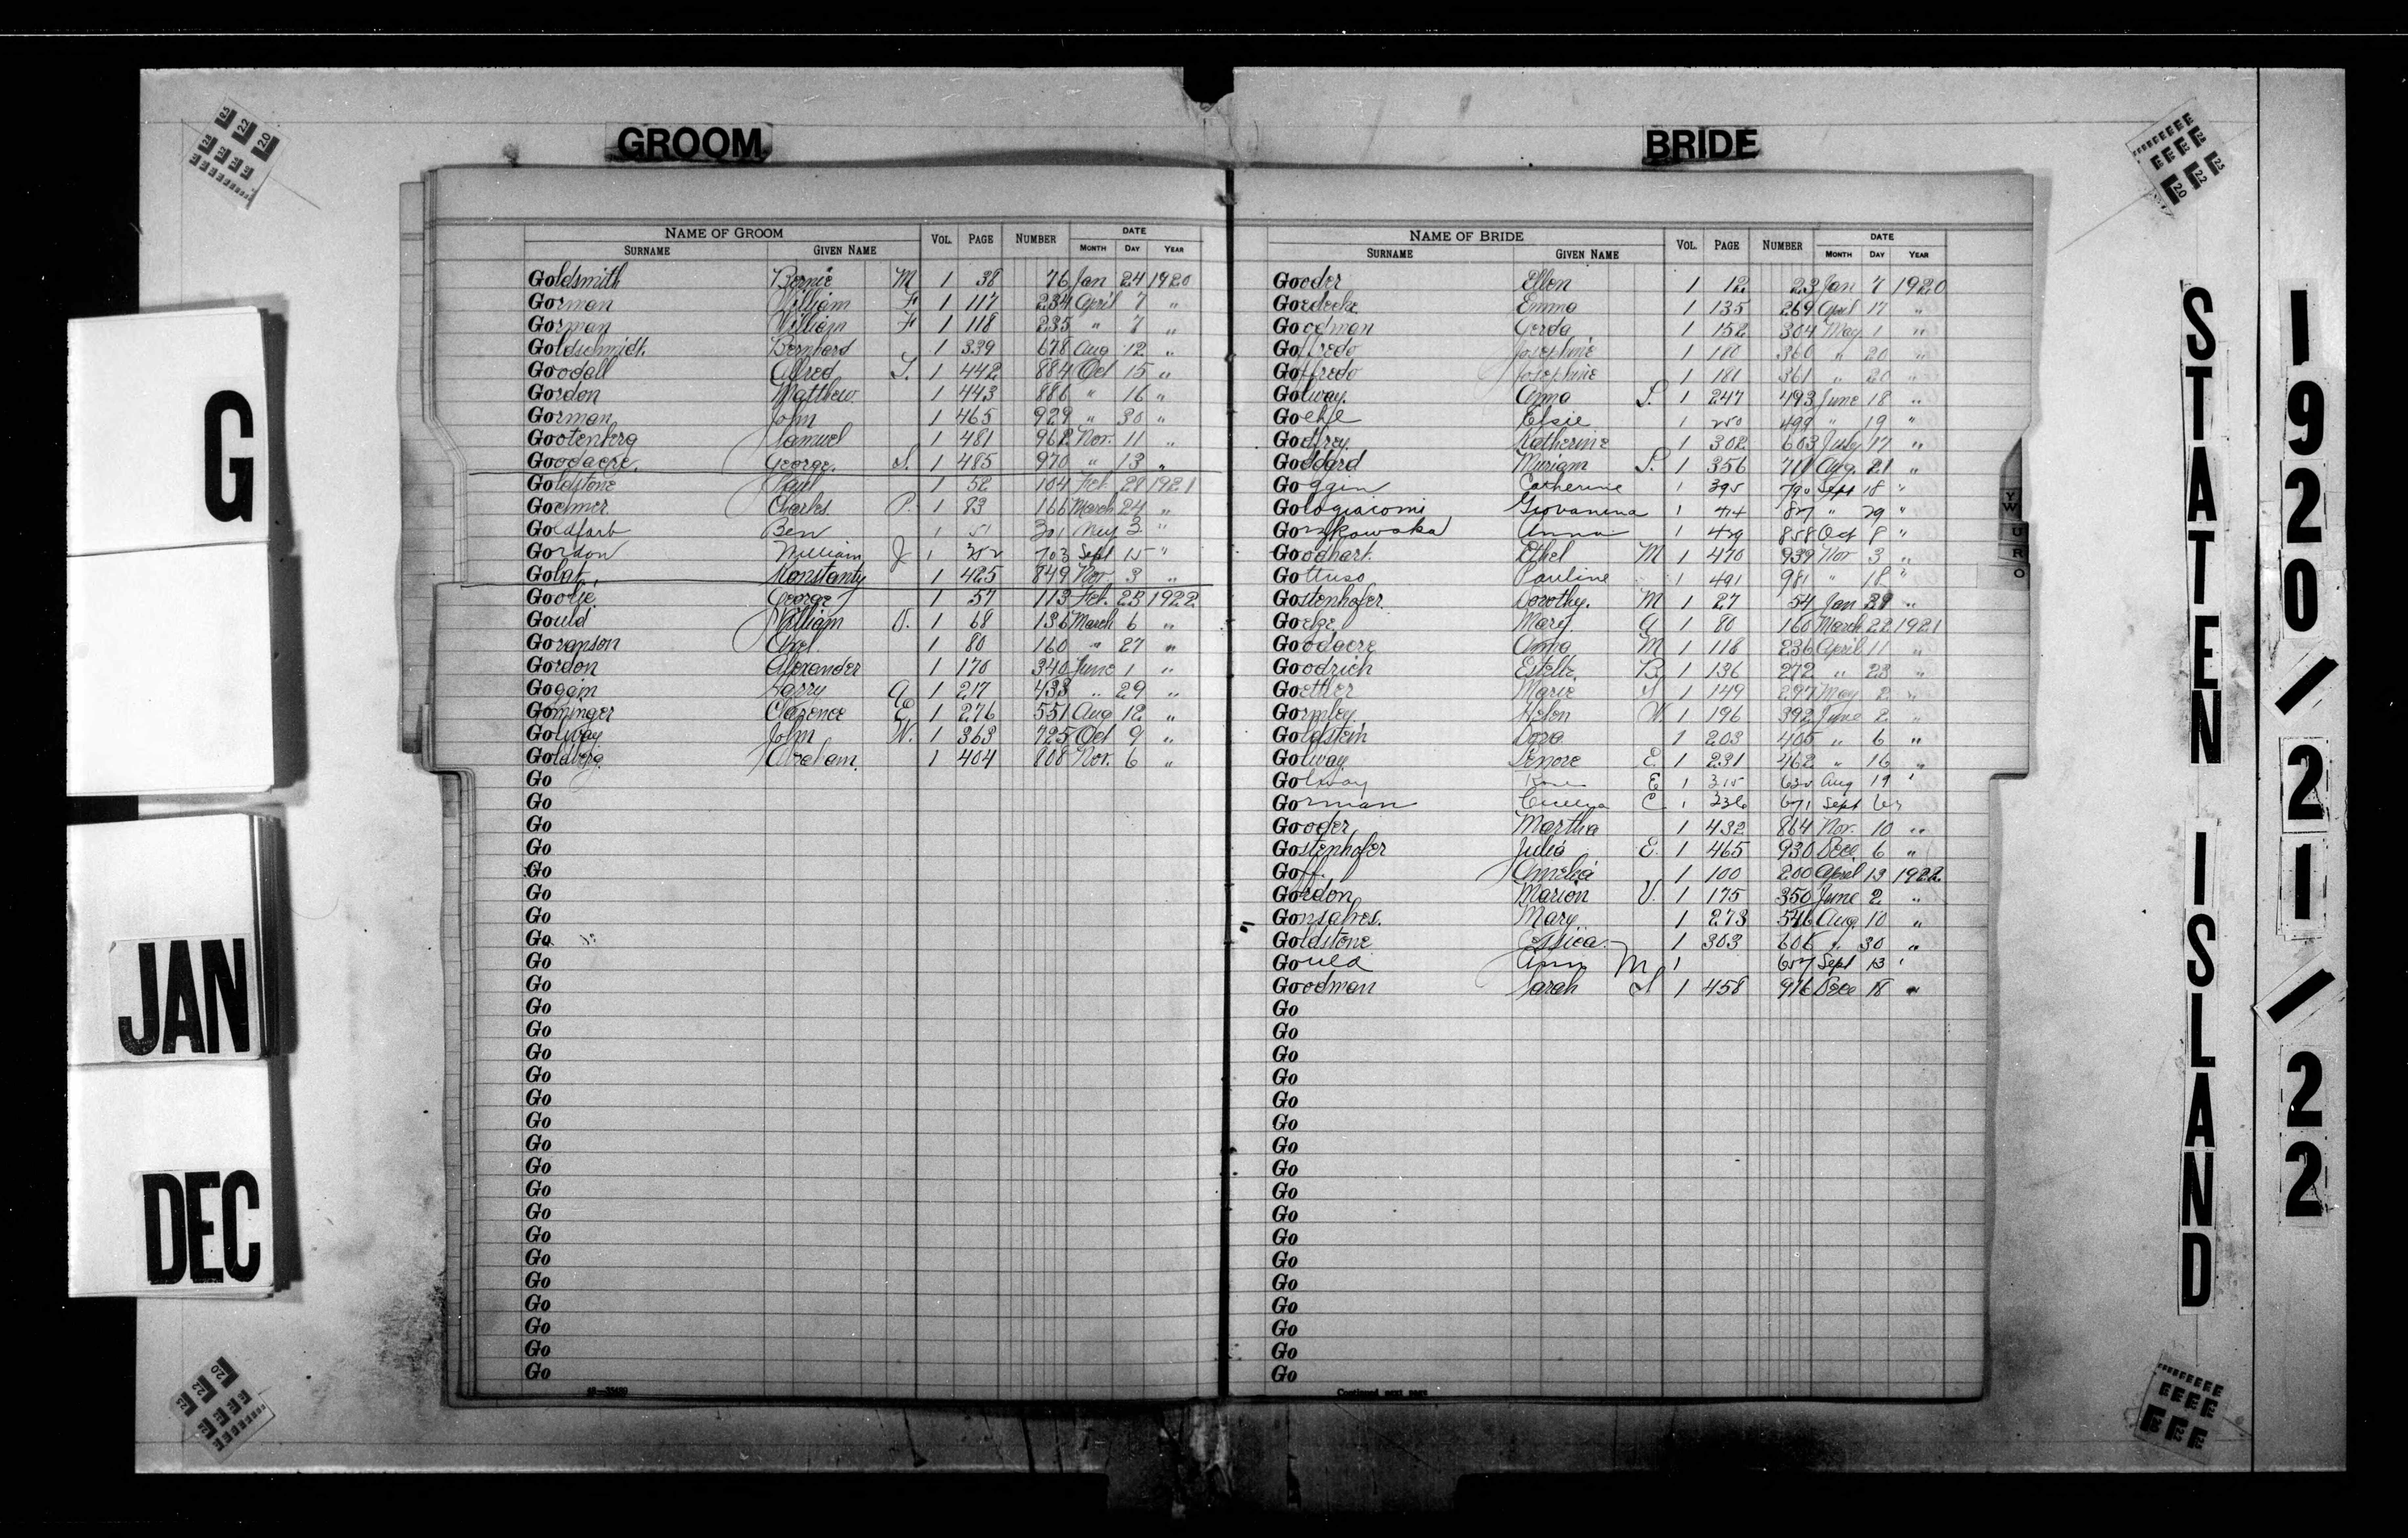 GROOM
BRIDE
G
JAN
DEC
STATEN ISLAND
1920/21/22
NAME OF GROOM VOL. PAGE NUMBER DATE
SURNAME GIVEN NAME MONTH DAY YEAR
Goldsmith Bernie M 1 38 76 Jan 24 1920
Gorman William F 1 117 234 April 7 "
Gorman William F 1 118 235 " 7 "
Goldschmidt Bernhard 1 339 678 Aug 12 "
Goodall Alfred S. 1 442 884 Oct 15 "
Gordon Matthew 1 443 886 " 16 "
Gorman John 1 465 929 " 30 "
Gootenberg Samuel 1 481 962 Nov. 11 "
Goodacre George S. 1 485 970 " 13 "
Goldstone Paul 1 52 104 Feb. 28 1921
Goemer Charles P. 1 83 166 March 24 "
Goldfarb Ben 1 301 May 3 "
Gordon William J 1 352 703 Sept 15 "
Golat Konstanty 1 425 849 Nov. 3 "
George 1 57 113 Feb. 23 1922
Gould William 1 68 136 March 6 "
Goranson Axel 1 80 160 " 27 "
Gordon Alexander 1 170 340 June 1 "
Harry 1 217 433 " 29 "
Gominger Clarence E 1 276 551 Aug 12 "
Golway John W. 1 363 725 Oct 9 "
Goldberg Abraham 1 404 808 Nov. 6 "
Go
Go
Go
Go
Go
Go
Go
Go
Go
Go
Go
Go
Go
Go
Go
Go
Go
Go
Go
Go
Go
Go
Go
Go
Go
Go
Go
48—35489
NAME OF BRIDE VOL. PAGE NUMBER DATE
SURNAME GIVEN NAME MONTH DAY YEAR
Gooder Ellen 1 12 23 Jan 7 1920
Goedecke Emma 1 135 269 April 17 "
Goodman Gerda 1 152 304 May 1 "
Goffredo Josephine 1 180 360 " 20 "
Goffredo Josephine 1 181 361 " 20 "
Golway Anna S. 1 247 493 June 18 "
Elsie 1 250 499 " 19 "
Godfrey Katherine 1 302 603 July 17 "
Goddard Miriam S. 1 356 711 Aug. 21 "
Goggin Catherine 1 395 790 Sept 18 "
Gologiacomi Giovanina 1 414 827 " 29 "
Anna 1 429 858 Oct 8 "
Goodhart Ethel M 1 470 939 Nov 3 "
Gottuso Pauline 1 491 981 " 18 "
Gostenhofer Dorothy M 1 27 54 Jan "
Goetze Mary A 1 80 160 March 22 1921
Goodacre Anna M 1 118 236 April 11 "
Goodrich Estelle B. 1 136 272 " 23 "
Goettler Marie S 1 149 297 May 2 "
Gormley Helen V. 1 196 392 June 2 "
Goldstein Dora 1 203 405 " 6 "
Golway Lenore E 1 231 462 " 16 "
Golway E 1 315 630 Aug 19 "
Gorman C 1 336 671 Sept
Gooder Martha 1 432 864 Nov. 10 "
Gostenhofer Julia E. 1 465 930 Dec 6 "
Goff Amelia 1 100 200 April 13 1922
Gordon Marion V. 1 175 350 June 2 "
Gonsalves Mary 1 273 546 Aug. 10 "
Goldstone Jessica 1 303 606 " 30 "
Gould Ann M 1 657 Sept 13 "
Goodman Sarah S 1 458 916 Dec 18 "
Go
Go
Go
Go
Go
Go
Go
Go
Go
Go
Go
Go
Go
Go
Go
Go
Go
Continued next page